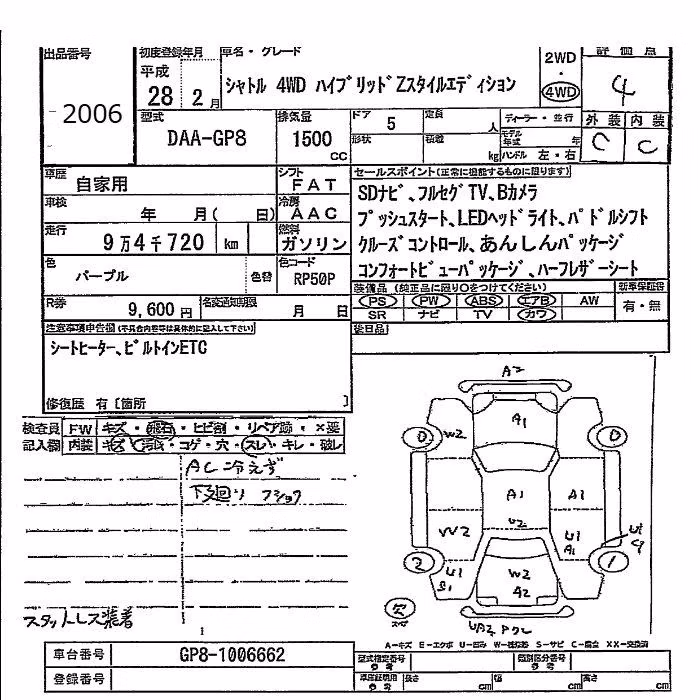 出品番号
2006
初度登録年月
平成
28 2月
車名・グレード
シャトル 4WD ハイブリッドZスタイルエディション
2WD
・
4WD
評価点
4
型式
DAA-GP8
排気量
1500
CC
ドア 5
定員 人
形状
積載 kg
ディーラー・並行
モデル年式 年
ハンドル 左・右
外装 内装
C C
車歴
自家用
シフト
FAT
車検
年 月( 日)
冷房
AAC
走行
9万4千720 km
燃料
ガソリン
色
パープル
色替
色コード
RP50P
R券
9,600円
名変通知期限
月 日
セールスポイント(正常に機能するものに限ります)
SDナビ、フルセグTV、Bカメラ
プッシュスタート、LEDヘッドライト、パドルシフト
クルーズコントロール、あんしんパッケージ
コンフォートビューパッケージ、ハーフレザーシート
装備品 (純正品に限り○をつけてください)
PS PW ABS エアB AW
SR ナビ TV カワ
新車保証書
有・無
後日品
注意事項申告欄(不具合内容等は具体的に記入して下さい)
シートヒーター、ビルトインETC
修復歴 有〔箇所 〕
検査員
記入欄
FW キズ・飛石・ヒビ割・リペア跡・×要
内装 キズ・汚れ・コゲ・穴・スレ・キレ・破レ
AC冷えず
下廻り フショク
スタットレス装着
A2
A1
W2
0
0
A1
A1
U2
W2
U1
A1
U1
2
1
U1
S1
W2
A2
欠
A-キズ E-エクボ U-凹み W-補修跡 S-サビ C-腐食 XX-交換済
車台番号
GP8-1006662
登録番号
型式指定番号
参考
類別区分番号
参考
車庫証明用
参考
長さ cm
幅 cm
高さ cm